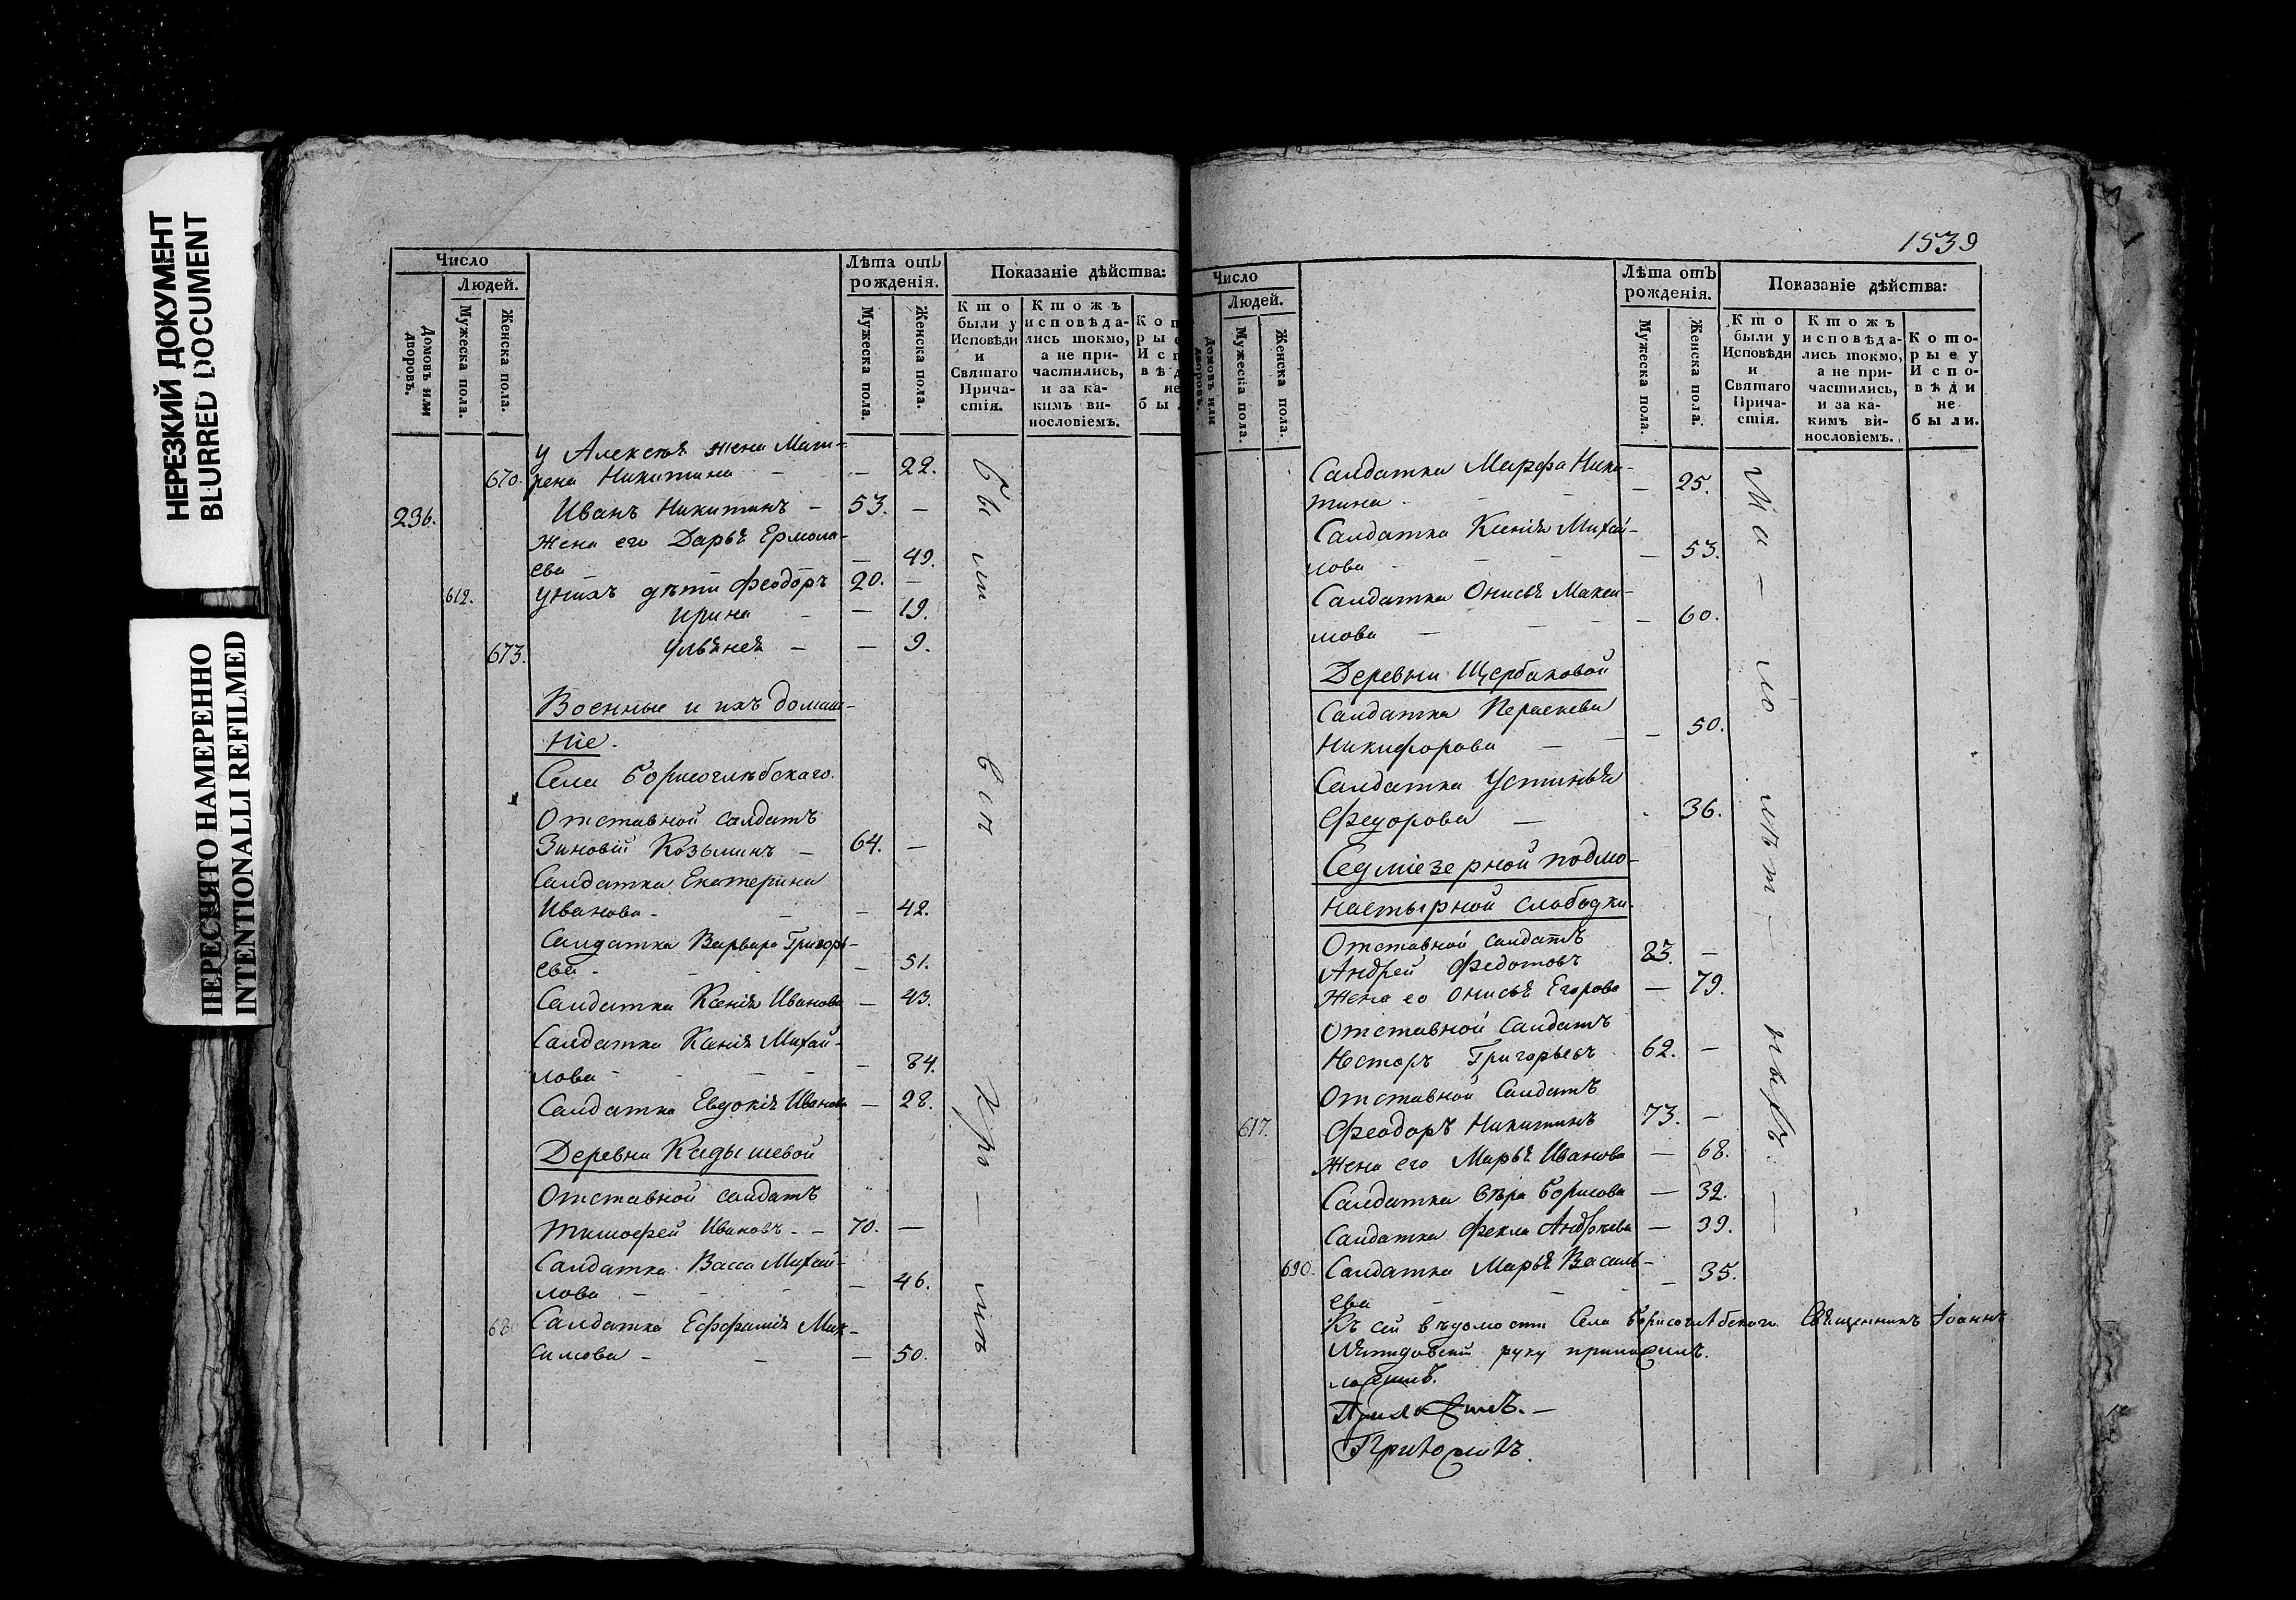 НЕРЕЗКИЙ ДОКУМЕНТ
BLURRED DOCUMENT
ПЕРЕСНЯТО НАМЕРЕННО
INTENTIONALLI REFILMED
Число
Людей.
Домовъ или дворовъ.
Мужеска пола.
Женска пола.
Лѣта отъ рожденія.
Мужеска пола.
Женска пола.
Показаніе дѣйства:
Кто были у Исповѣди и Святаго Прича-стія.
Ктожъ исповѣда-лись токмо, а не при-частились, и за ка-кимъ ви-нословіемъ.
у Алексѣя жена Мат-
670. рена Никитина — — 22.
236. Иванъ Никитинъ — 53. —
жена его Дарья Ермола-
ева — 49.
612. у нихъ дѣти Феодоръ 20. —
Ирина — — 19.
673. Ульянея — — 9.
Военные и ихъ домаш-
ніе.
Села Борисоглѣбскаго.
Отставной салдатъ
Зиновій Козьминъ — 64. —
Салдатка Екатерина
Иванова — — — 42.
Салдатка Варвара Григорь-
ева — — 51.
Салдатка Ксенія Иванова — 43.
Салдатка Ксенія Михай-
лова — — 84.
Салдатка Евдокія Иванова — 28.
Деревни Кадышевой
Отставной салдатъ
Тимофей Ивановъ — 70. —
Салдатка Васса Михай-
лова — — 46.
Салдатка Ефимія Мак-
симова — — — 50.
были
вси
1539
Число
Людей.
Домовъ или дворовъ.
Мужеска пола.
Женска пола.
Лѣта отъ рожденія.
Мужеска пола.
Женска пола.
Показаніе дѣйства:
Кто были у Исповѣди и Святаго Прича-стія.
Ктожъ исповѣда-лись токмо, а не при-частились, и за ка-кимъ ви-нословіемъ.
Кото-рые у Испо-вѣди не были.
Салдатка Марфа Ники-
тина — — 25.
Салдатка Ксенія Михай-
лова — — 53.
Салдатка Онисья Макси-
мова — — — 60.
Деревни Щербаковой
Салдатка Пераскева
Никифорова — — — 50.
Салдатка Устинья
Федорова — 36.
Седміезерной подмо-
настырной слободки.
Отставной салдатъ
Андрей Федотовъ 83. —
Жена ео Онисья Егорова — 79.
Отставной салдатъ
Несторъ Григорьевъ 62. —
Отставной Салдатъ
617. Феодоръ Никитинъ 73. —
Жена его Марья Иванова — 68.
Салдатка Вѣра Борисова — 32.
Салдатка Фекла Андрѣева — 39.
690. Салдатка Марья Василь-
ева — 35.
Ма — ло
лѣт —
Къ сей вѣдомости Села Борисоглѣбскаго Священникъ Іоаннъ
руку приложилъ.
ложилъ.
Приложилъ. —
Приложилъ.